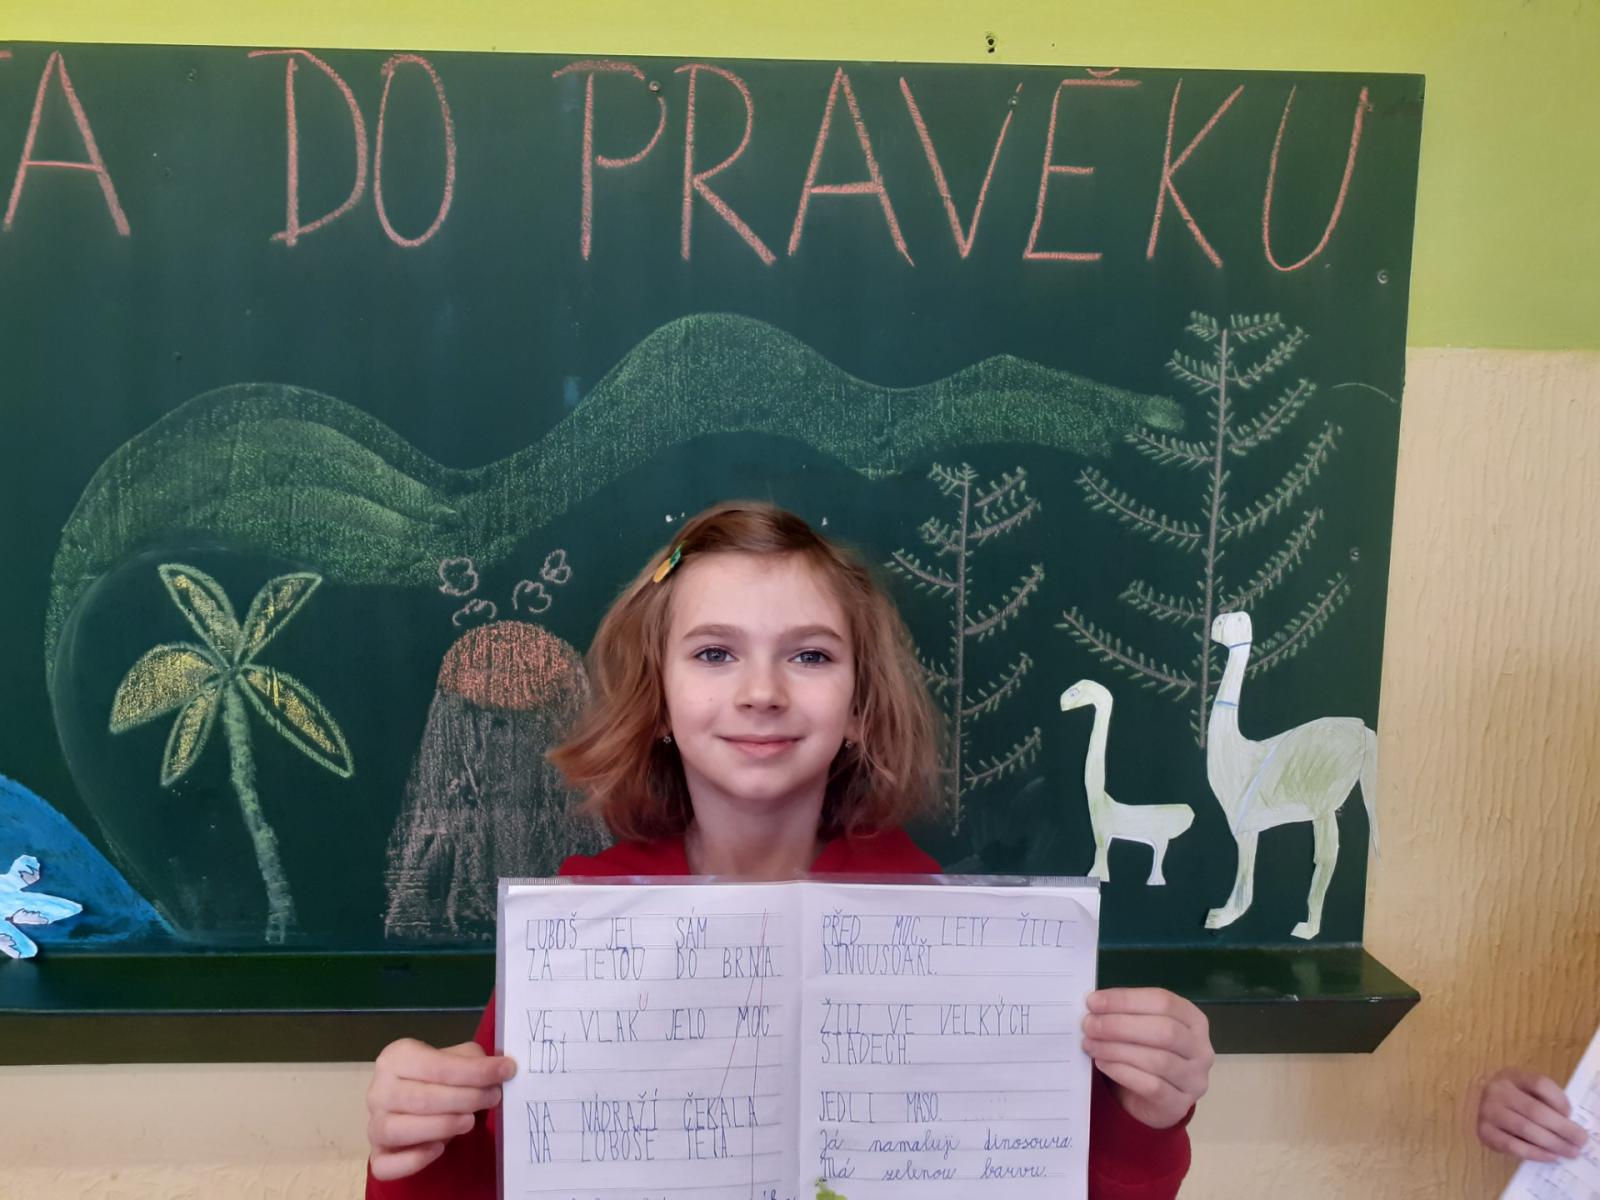 TA DO PRAVĚKU
LUBOŠ JEL SÁM
ZA TETOU DO BRNA.
U
VE VLAK JELO MOC
LIDÍ.
NA NÁDRAŽÍ ČEKALA
NA LUBOŠE TETA.
PŘED MOC LETY ŽILI
DINOUSOAŘI.
ŽILI VE VELKÝCH
STÁDECH.
JEDLI MASO.
Já namaluji dinosoura.
Má zelenou barvu.